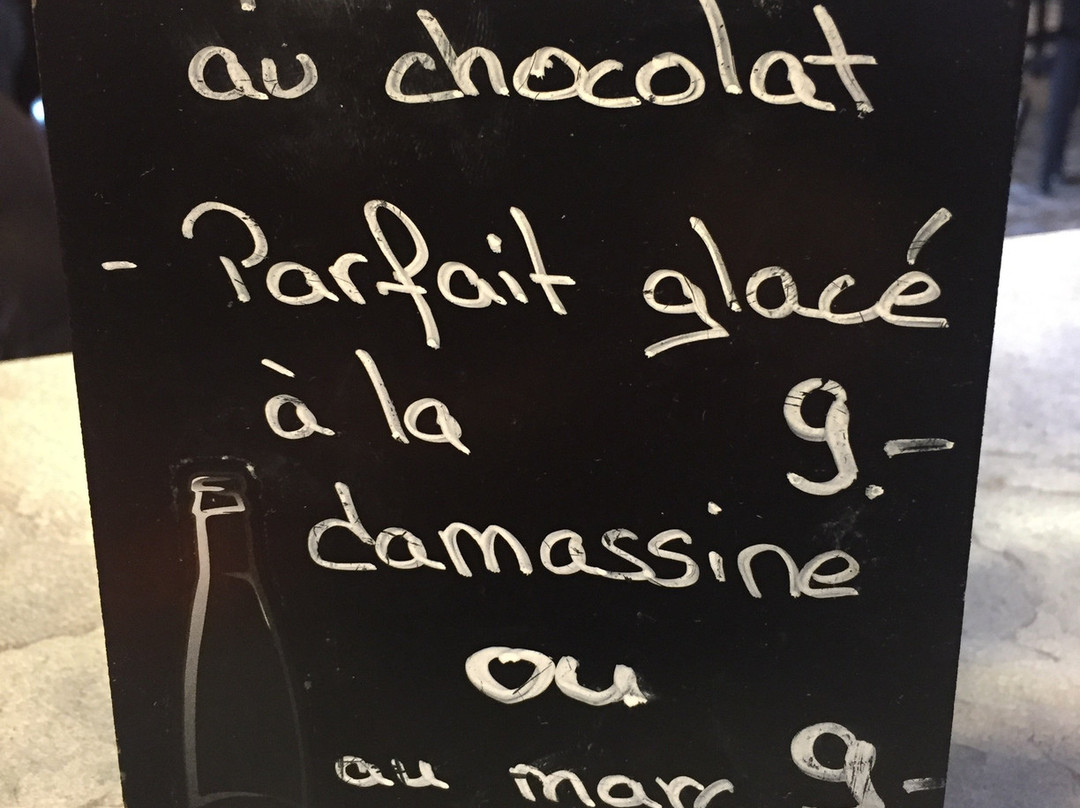 au chocolat
- Parfait glacé
à la 9.-
damassine
ou
au marc 9.-